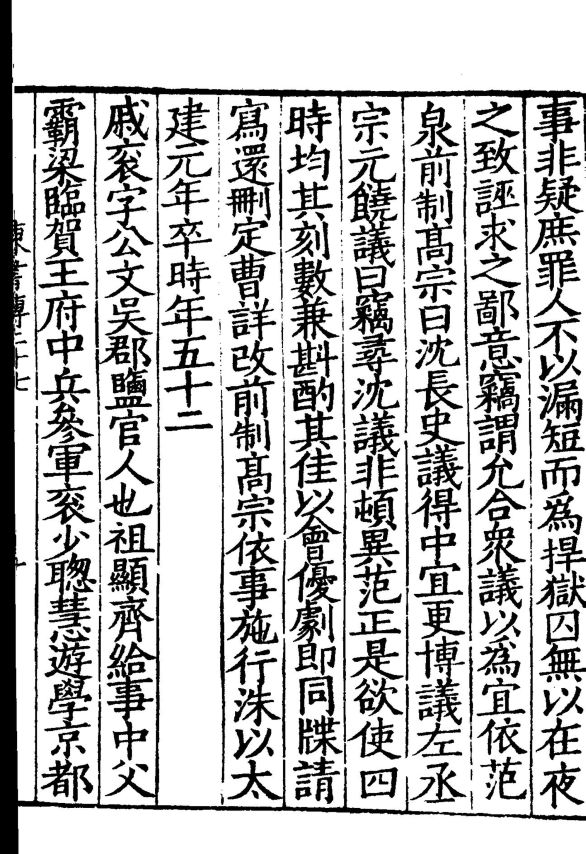 事非疑庶罪人不以漏短而為捍獄囚無以在夜
之致誣求之鄙意竊謂允合衆議以為宜依范
泉前制髙宗曰沈長史議得中宜更博議左丞
宗元饒議曰竊尋沈議非頓異范正是欲使四
時均其刻數兼斟酌其佳以會優劇即同牒請
寫還刪定曹詳改前制髙宗依事施行洙以太
建元年卒時年五十二
戚衮字公文吳郡鹽官人也祖顯齊給事中父
霸梁臨賀王府中兵參軍衮少聰慧遊學京都
陳書傳二十七